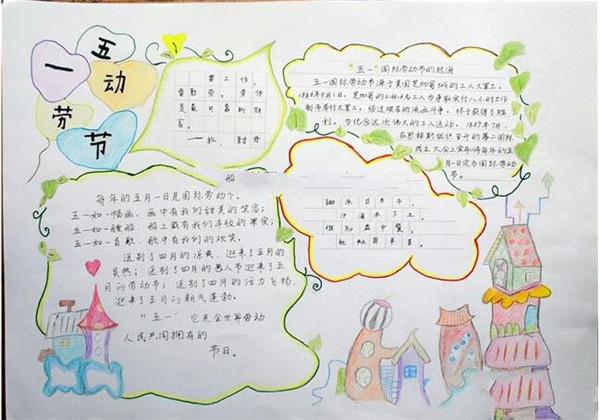 五一
动
劳节
要工作,
要勤劳,劳作
是最可靠的财
富。
“五一”国际劳动节的起源
五一国际劳动节源于美国芝加哥城的工人大罢工。
1886年5月1日,芝加哥的
工人为争取实行八小时工作
制而举行大罢工,经过艰苦的流血斗争,终于获得了胜
利。为纪念这次伟大的工人运动,1889年7月,
在恩格斯组织召开的第二国际
成立大会上宣布将每年的五
月一日定为国际劳动
节。
锄禾日当午,
汗滴禾下土。
谁知盘中餐,
粒粒皆辛苦。
每年的五月一日是国际劳动节。
五一如一幅画,画中有我们甜美的笑容;
五一如一艘船,船上载有我们丰收的果实;
五一如一首歌,歌中有我们的欢笑。
送别了四月的凉爽,迎来了五月的
炎热;送别了四月的愚人节迎来了五
月的劳动节;送别了四月的活力飞扬,
迎来了五月的朝气蓬勃。
“五一” 它是全世界劳动
人民共同拥有的
节日。